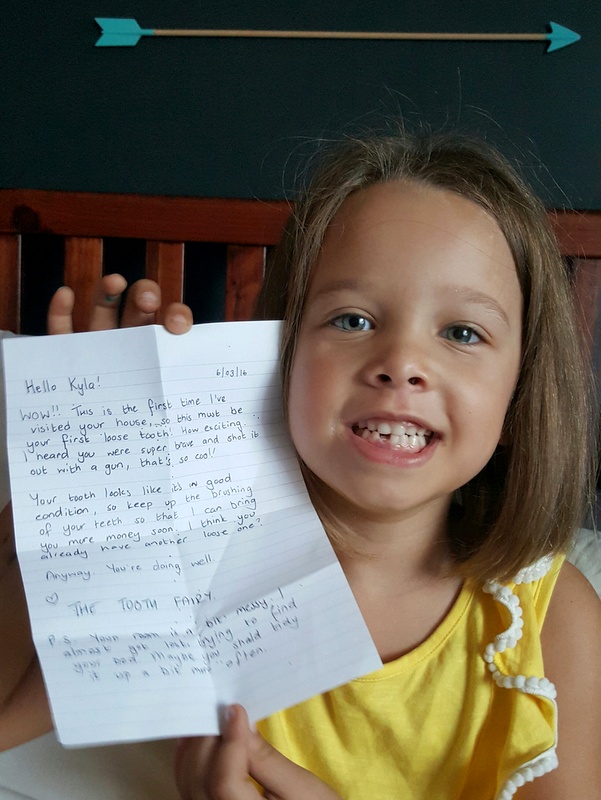 6/03/16
Hello Kyla!
WOW!! This is the first time I've
visited your house, so this must be
your first loose tooth! How exciting.
I heard you were super brave and shot it
out with a gun, that's so cool!
Your tooth looks like it's in good
condition, so keep up the brushing
of your teeth so that I can bring
you more money soon. I think you
already have another loose one?
Anyway. You're doing well
♡
THE TOOTH FAIRY
P.S. Your room is a bit messy. I
almost got lost trying to find
your bed. Maybe you should tidy
it up a bit more often.